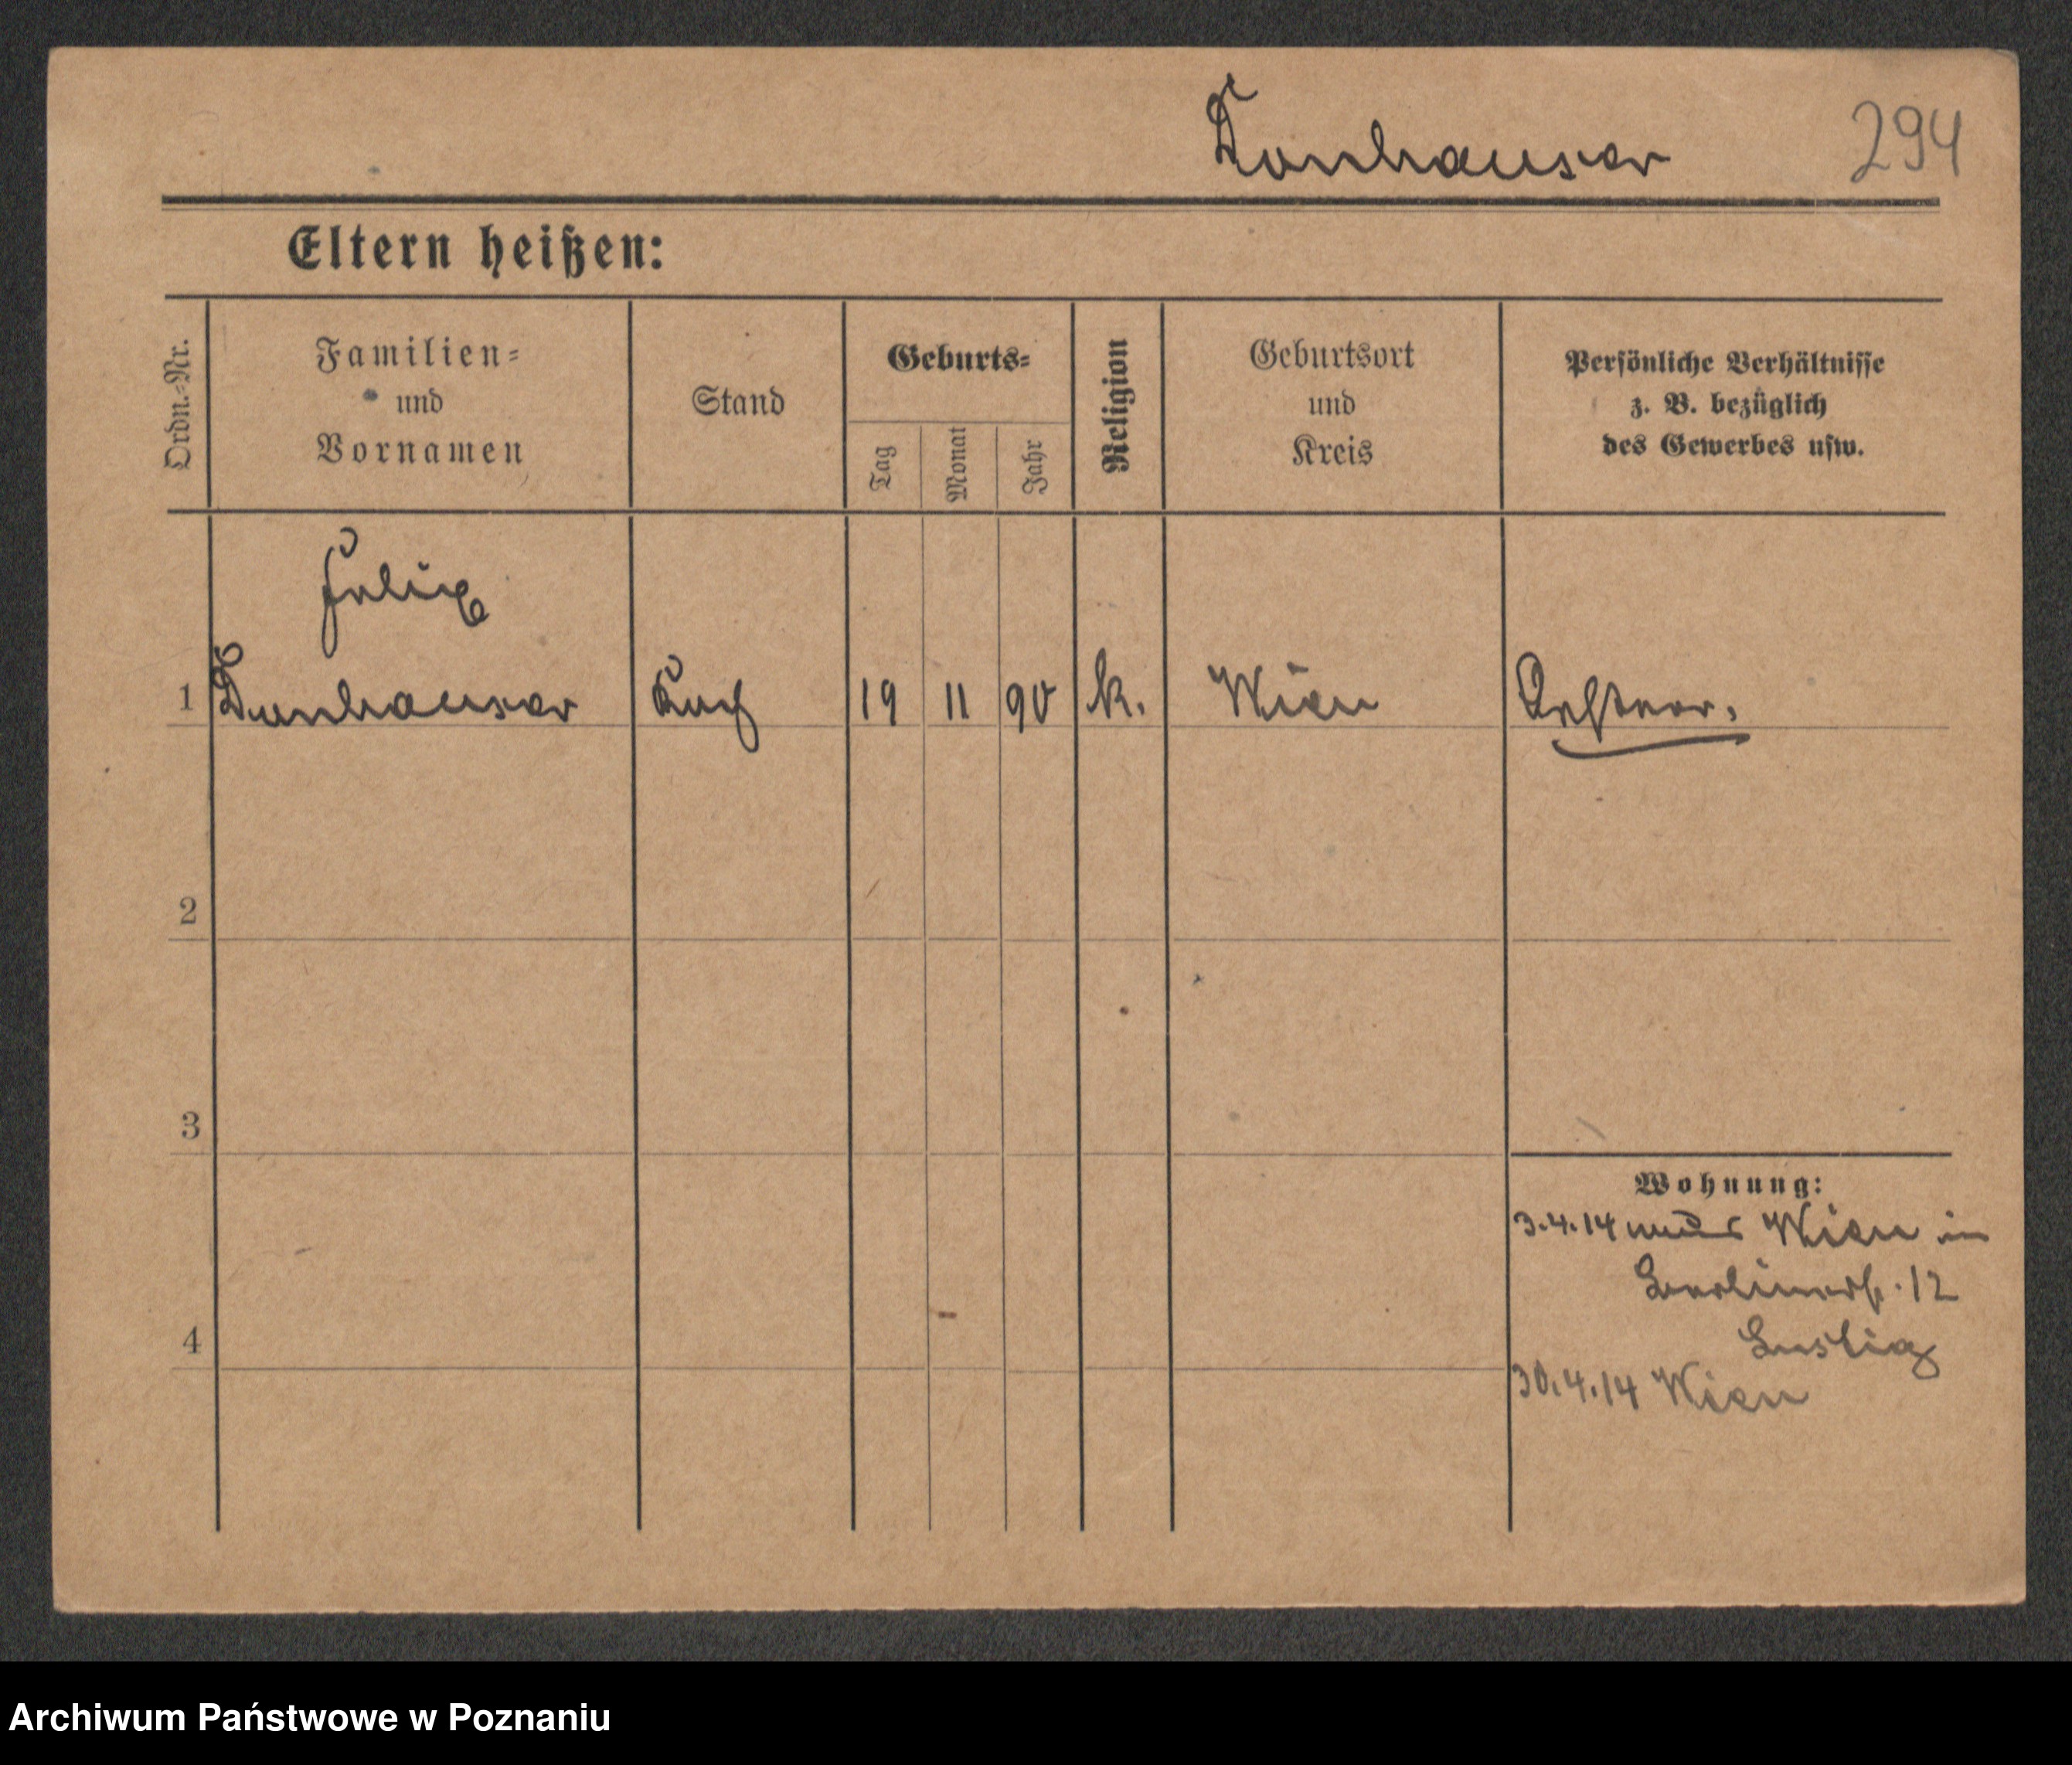 Donhauser 294
Eltern heißen:
Ordn.-Nr. Familien- und Vornamen Stand Geburts- Tag Monat Jahr Religion Geburtsort und Kreis Persönliche Verhältnisse z. B. bezüglich des Gewerbes usw.
Felix
1 Donhauser 19 11 90 k. Wien Oesterr.
2
3
Wohnung:
3.4.14 aus Wien in
Berlinerstr. 12
4 Lustig
30.4.14 Wien
Archiwum Państwowe w Poznaniu